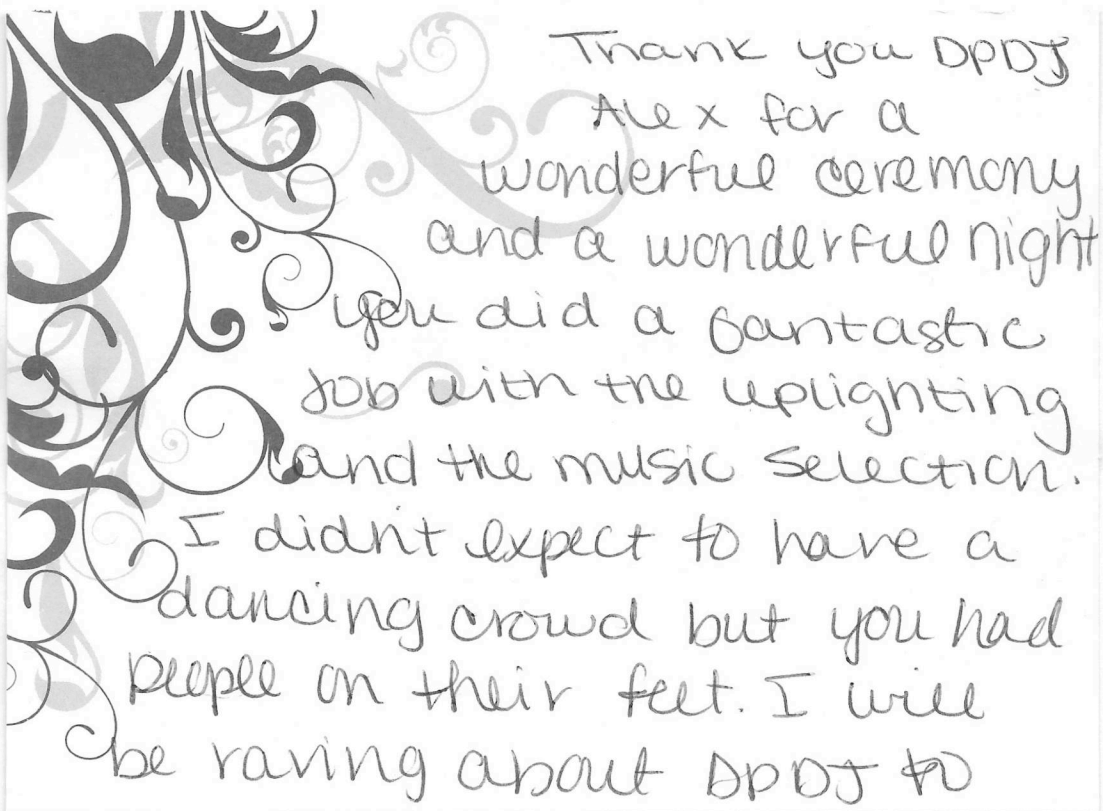 Thank you DPDJ
Alex for a
wonderful ceremony
and a wonderful night
you did a fantastic
job with the uplighting
and the music selection.
I didn't expect to have a
dancing crowd but you had
people on their feet. I will
be raving about DPDJ to